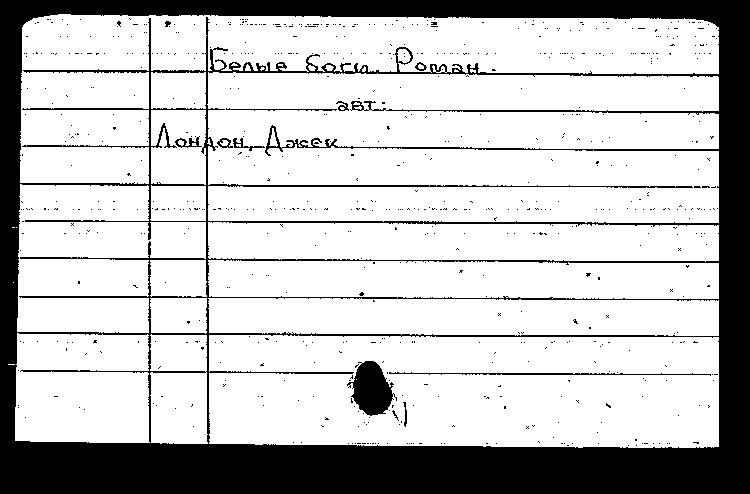 Белые боги. Роман.
авт:
Лондон, Джек.